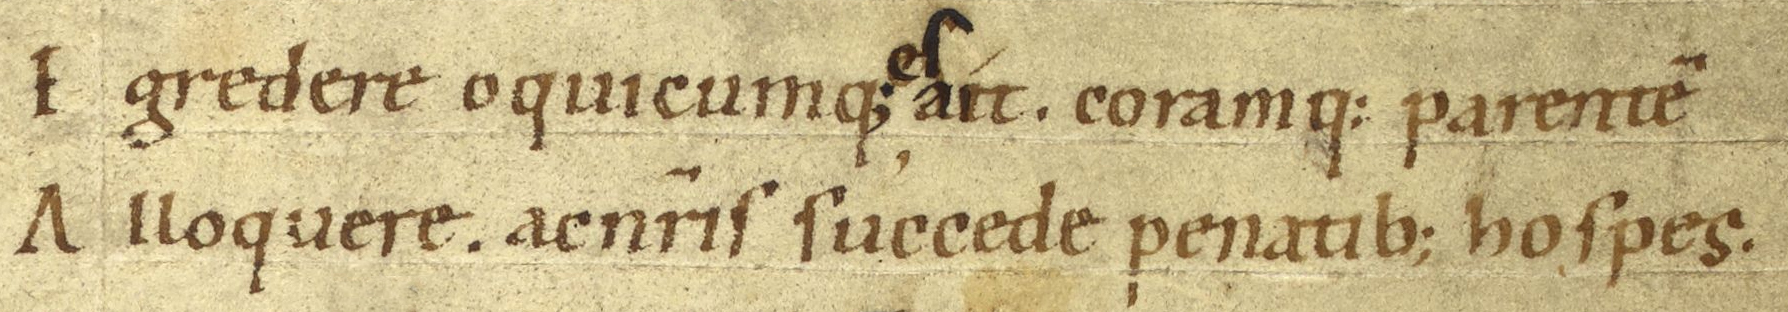 I gredere oquicumq; es ait. coramq: parentē
A lloquere. acnr̄is succede penatib; hospes.